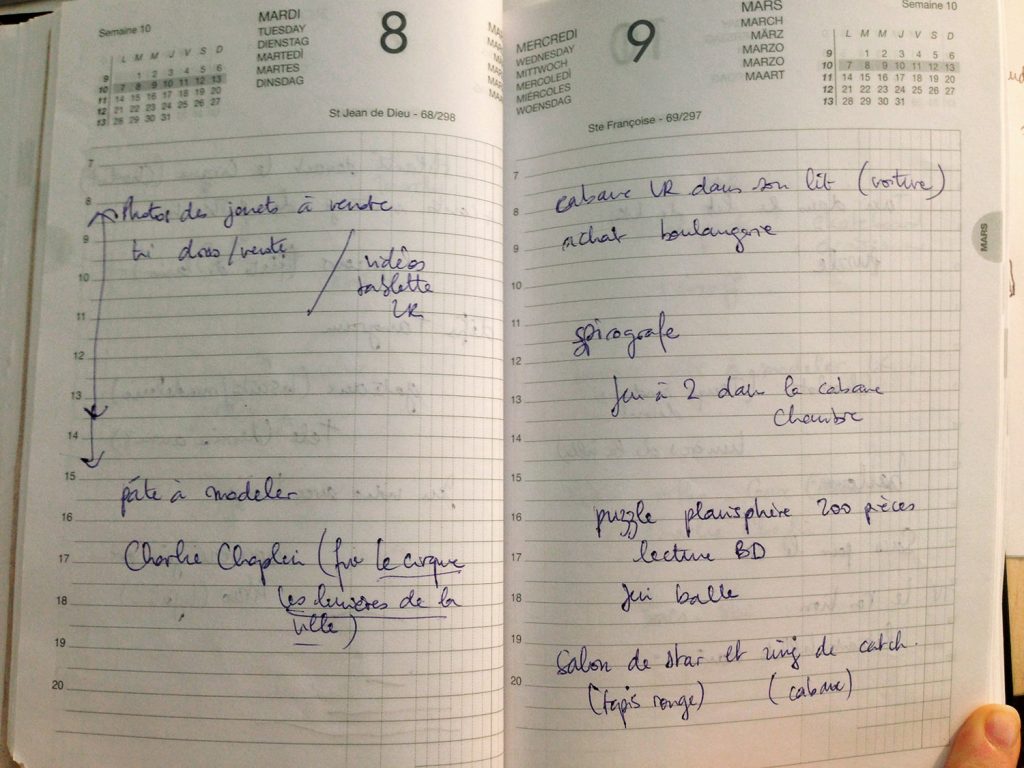 Semaine 10
L M M J V S D
9 1 2 3 4 5 6
10 7 8 9 10 11 12 13
11 14 15 16 17 18 19 20
12 21 22 23 24 25 26 27
13 28 29 30 31
MARDI
TUESDAY
DIENSTAG
MARTEDÌ
MARTES
DINSDAG
8
St Jean de Dieu - 68/298
7
8
Photos des jouets à vendre
9
tri dons/vente
vidéos
10
tablette
VR
11
12
13
14
15
pâte à modeler
16
17
Charlie Chaplin (fin le cirque
18
les lumières de la
ville)
19
20
MERCREDI
WEDNESDAY
MITTWOCH
MERCOLEDÌ
MIÉRCOLES
WOENSDAG
9
MARS
MARCH
MÄRZ
MARZO
MARZO
MAART
Semaine 10
L M M J V S D
9 1 2 3 4 5 6
10 7 8 9 10 11 12 13
11 14 15 16 17 18 19 20
12 21 22 23 24 25 26 27
13 28 29 30 31
Ste Françoise - 69/297
7
cabane VR dans son lit (voiture)
8
achat boulangerie
9
MARS
10
11
spirografe
12
jeu à 2 dans la cabane
13
chambre
14
15
16
puzzle planisphère 200 pièces
17
lecture BD
18
jeu balle
19
Salon de star et ring de catch.
20
(tapis rouge) (cabane)